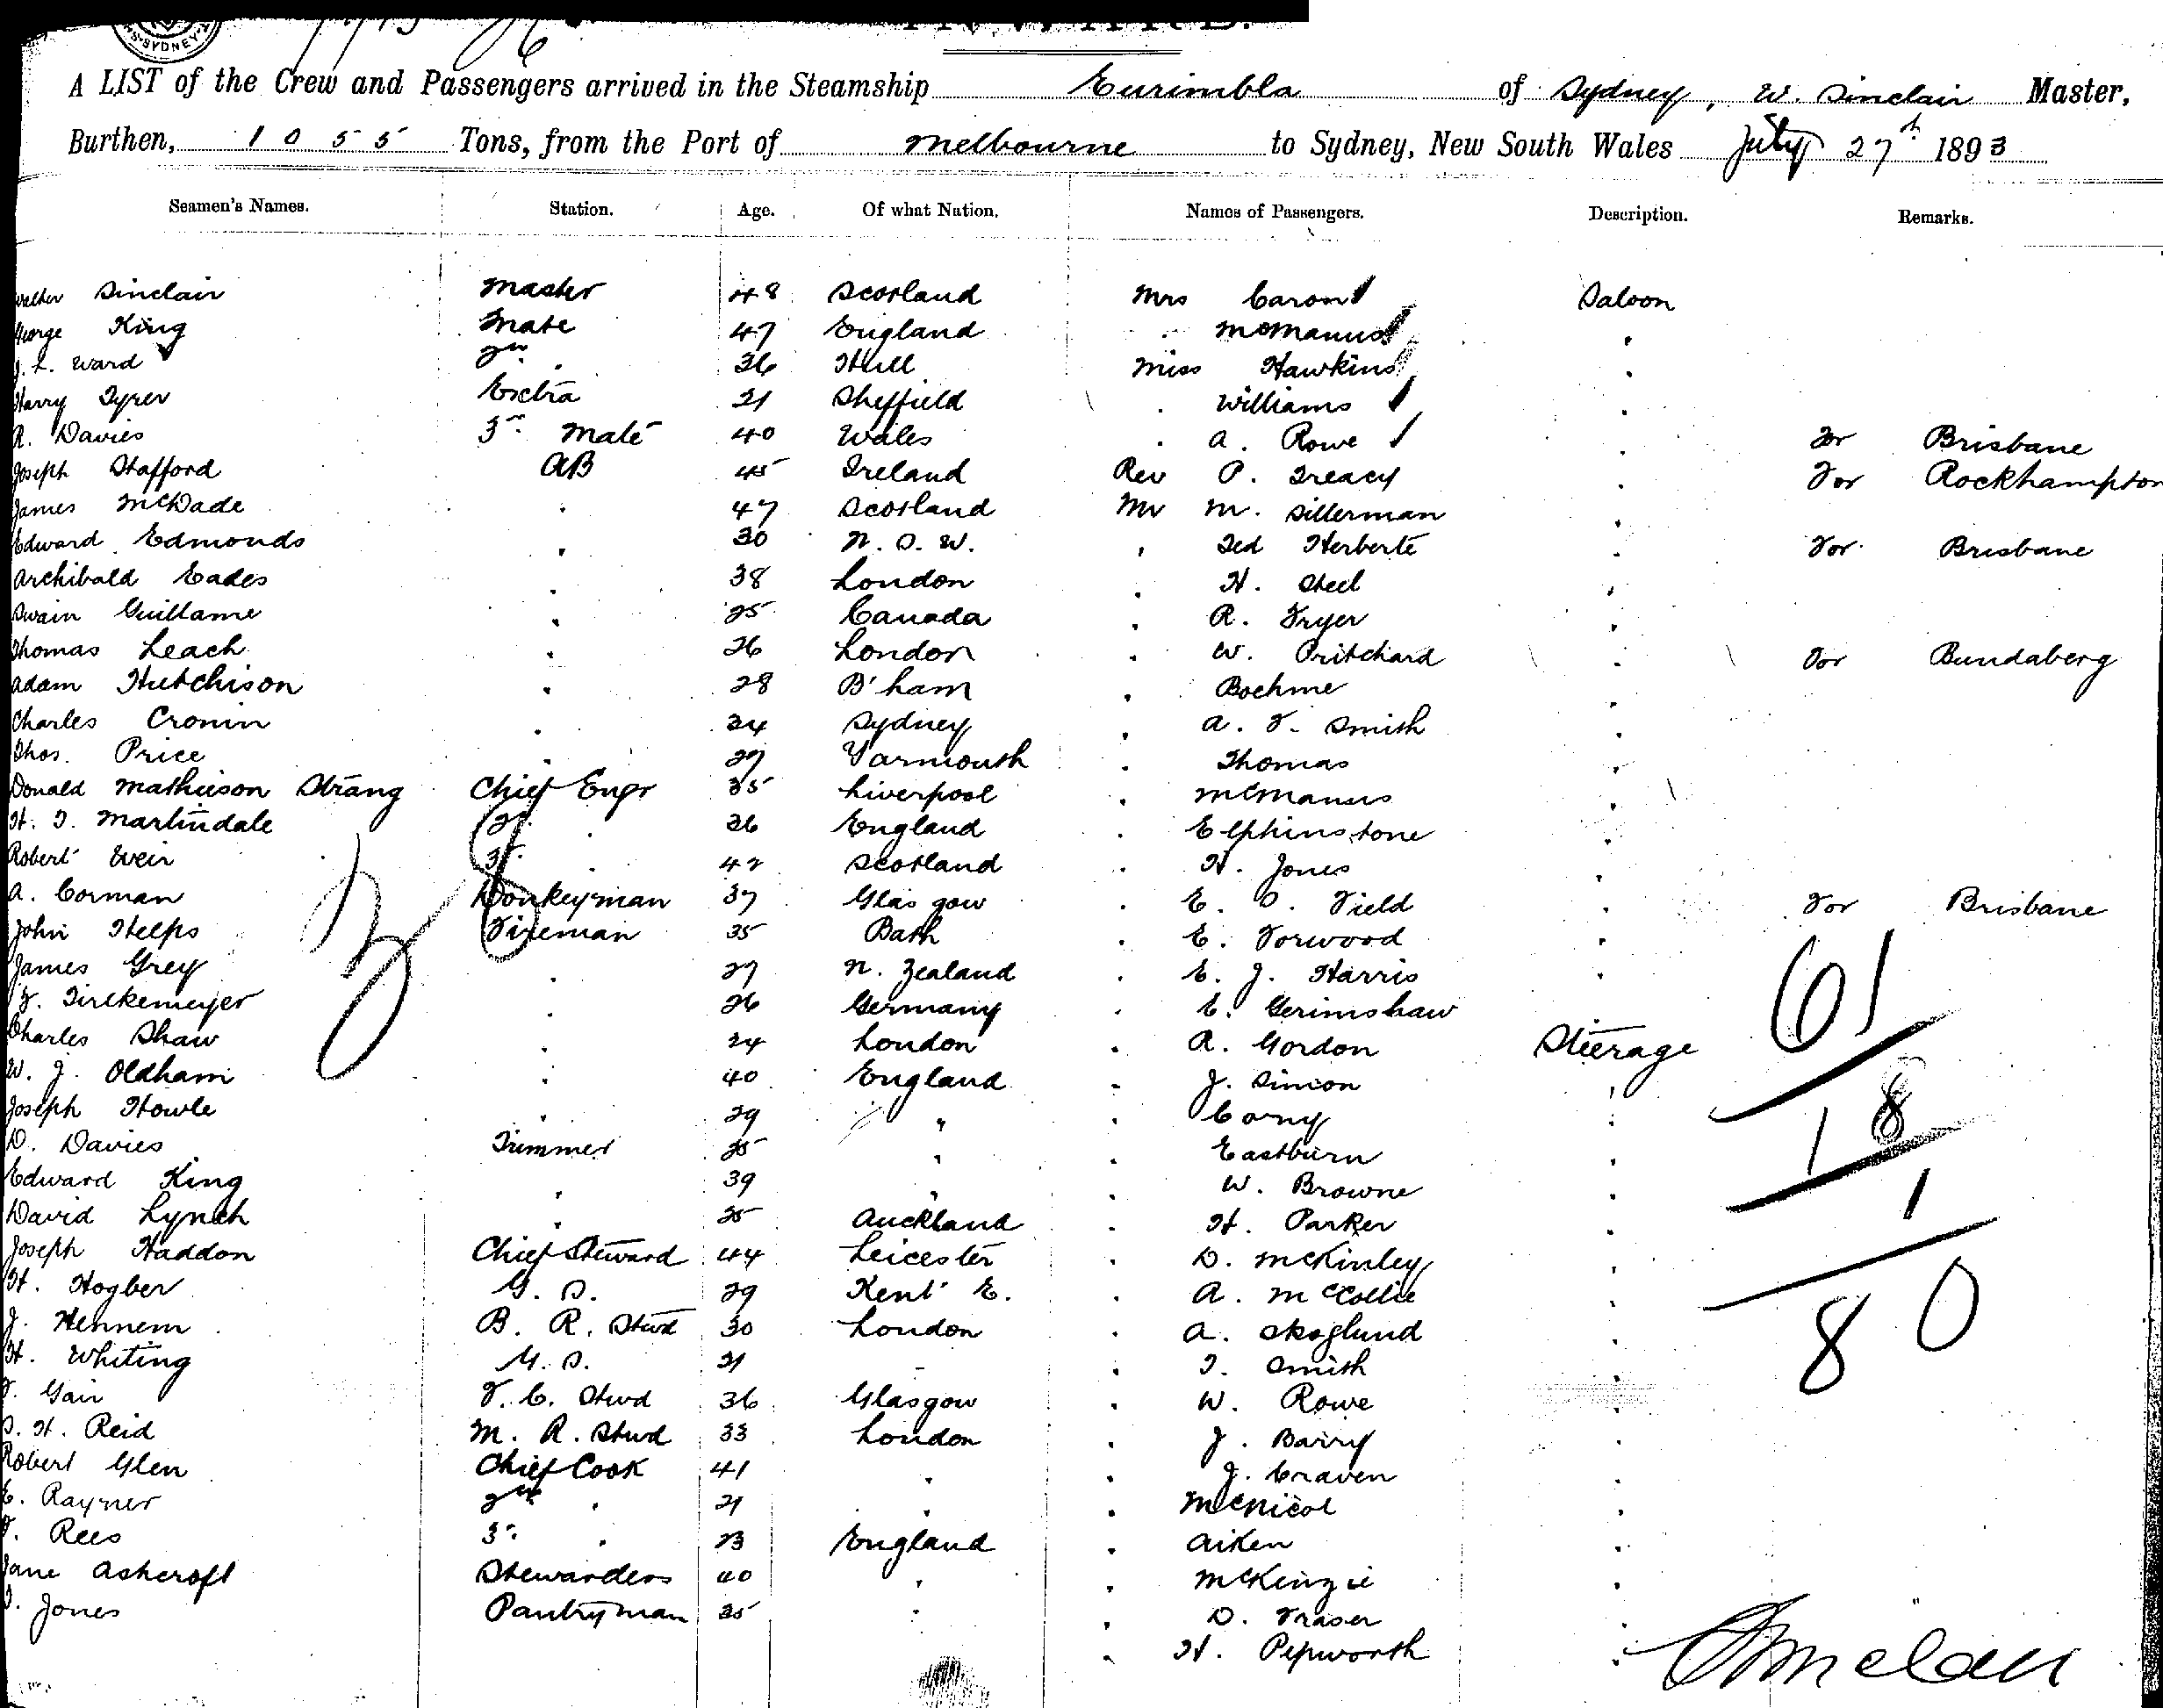 SYDNEY
INWARD.
A LIST of the Crew and Passengers arrived in the Steamship Eurimbla of Sydney, W. Sinclair Master,
Burthen, 1055 Tons, from the Port of Melbourne to Sydney, New South Wales July 27th 1893
Seamen's Names. Station. Age. Of what Nation. Names of Passengers. Description. Remarks.
Walter Sinclair Master 48 Scotland Mrs Caron Saloon
George King Mate 47 England " McManus "
J. L. Ward 2nd " 36 Hull Miss Hawkins "
Harry Tyrer Extra 21 Sheffield " Williams "
R. Davies 3rd Mate 40 Wales " A. Rowe " For Brisbane
Joseph Stafford AB 45 Ireland Rev P. Treacy " For Rockhampton
James McDade " 47 Scotland Mr M. Sillerman "
Edward Edmonds " 30 N.S.W. " Ted Herberte " For Brisbane
Archibald Eades " 38 London " H. Steel "
Swain Guillame " 25 Canada " R. Fryer "
Thomas Leach " 26 London " W. Pritchard " For Bundaberg
Adam Hutchison " 28 B'ham " Boehme "
Charles Cronin " 24 Sydney " A. F. Smith "
Thos. Price " 27 Yarmouth " Thomas "
Donald Mathieson Strang Chief Engr 35 Liverpool " McManus "
H. T. Martindale 2nd " 26 England " Elphinstone "
Robert Weir 3rd " 42 Scotland " H. Jones "
A. Corman Donkeyman 37 Glasgow " E. S. Field " For Brisbane
John Heelps Fireman 35 Bath " E. Forwood "
James Grey " 27 N. Zealand " E. J. Harris "
F. Tirlkemeyer " 26 Germany " E. Gerimshaw "
Charles Shaw " 24 London " R. Gordon Steerage
W. J. Oldham " 40 England " J. Simon "
Joseph Howle " 29 " " Cory "
D. Davies Trimmer 25 " " Eastburn "
Edward King " 39 " " W. Browne "
David Lynch " 25 Auckland " H. Parker "
Joseph Haddon Chief Steward 44 Leicester " D. McKinley "
H. Hogber G.S. 29 Kent E. " A. McCollie "
J. Hennem B. R. Stwd 30 London " A. Skoglund "
H. Whiting M.S. 21 - " T. Smith "
F. Gair F.C. Stwd 36 Glasgow " W. Rowe "
S. H. Reid M. R. Stwd 33 London " J. Barry "
Robert Glen Chief Cook 41 " " J. Craven "
E. Rayner 2nd " 21 " " McNicol "
F. Rees 3rd " 23 England " Aiken "
Jane Ashcroft Stewardess 40 " " McKenzie "
Jones Pantryman 25 " " D. Fraser "
" H. Pepworth "
38
61
18
1
80